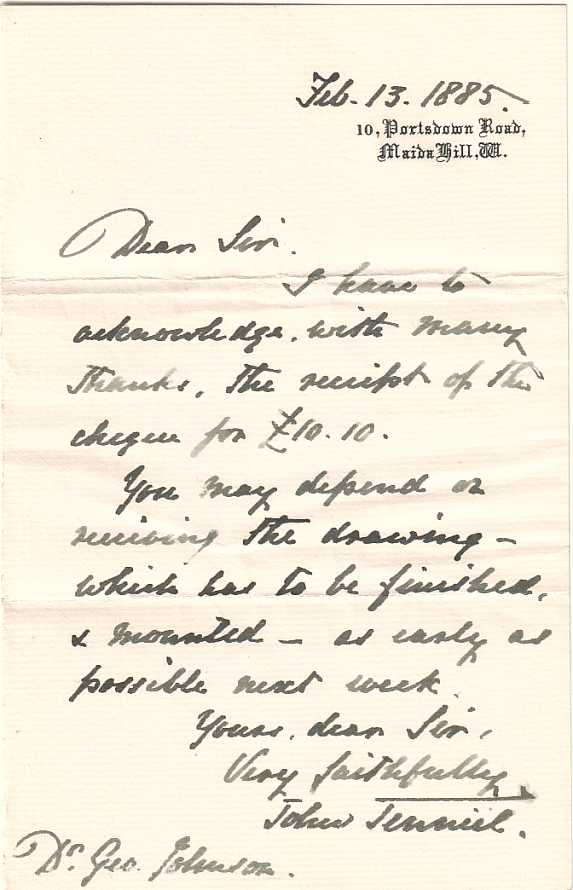 Feb. 13. 1885.
10, Portsdown Road,
Maida Hill, W.
Dear Sir.
I have to
acknowledge, with many
thanks, the receipt of the
cheque for £10.10.
You may depend on
receiving the drawing –
which has to be finished,
& mounted – as early as
possible next week.
Yours, dear Sir,
Very faithfully
John Tenniel.
Dr. Geo. Johnson.